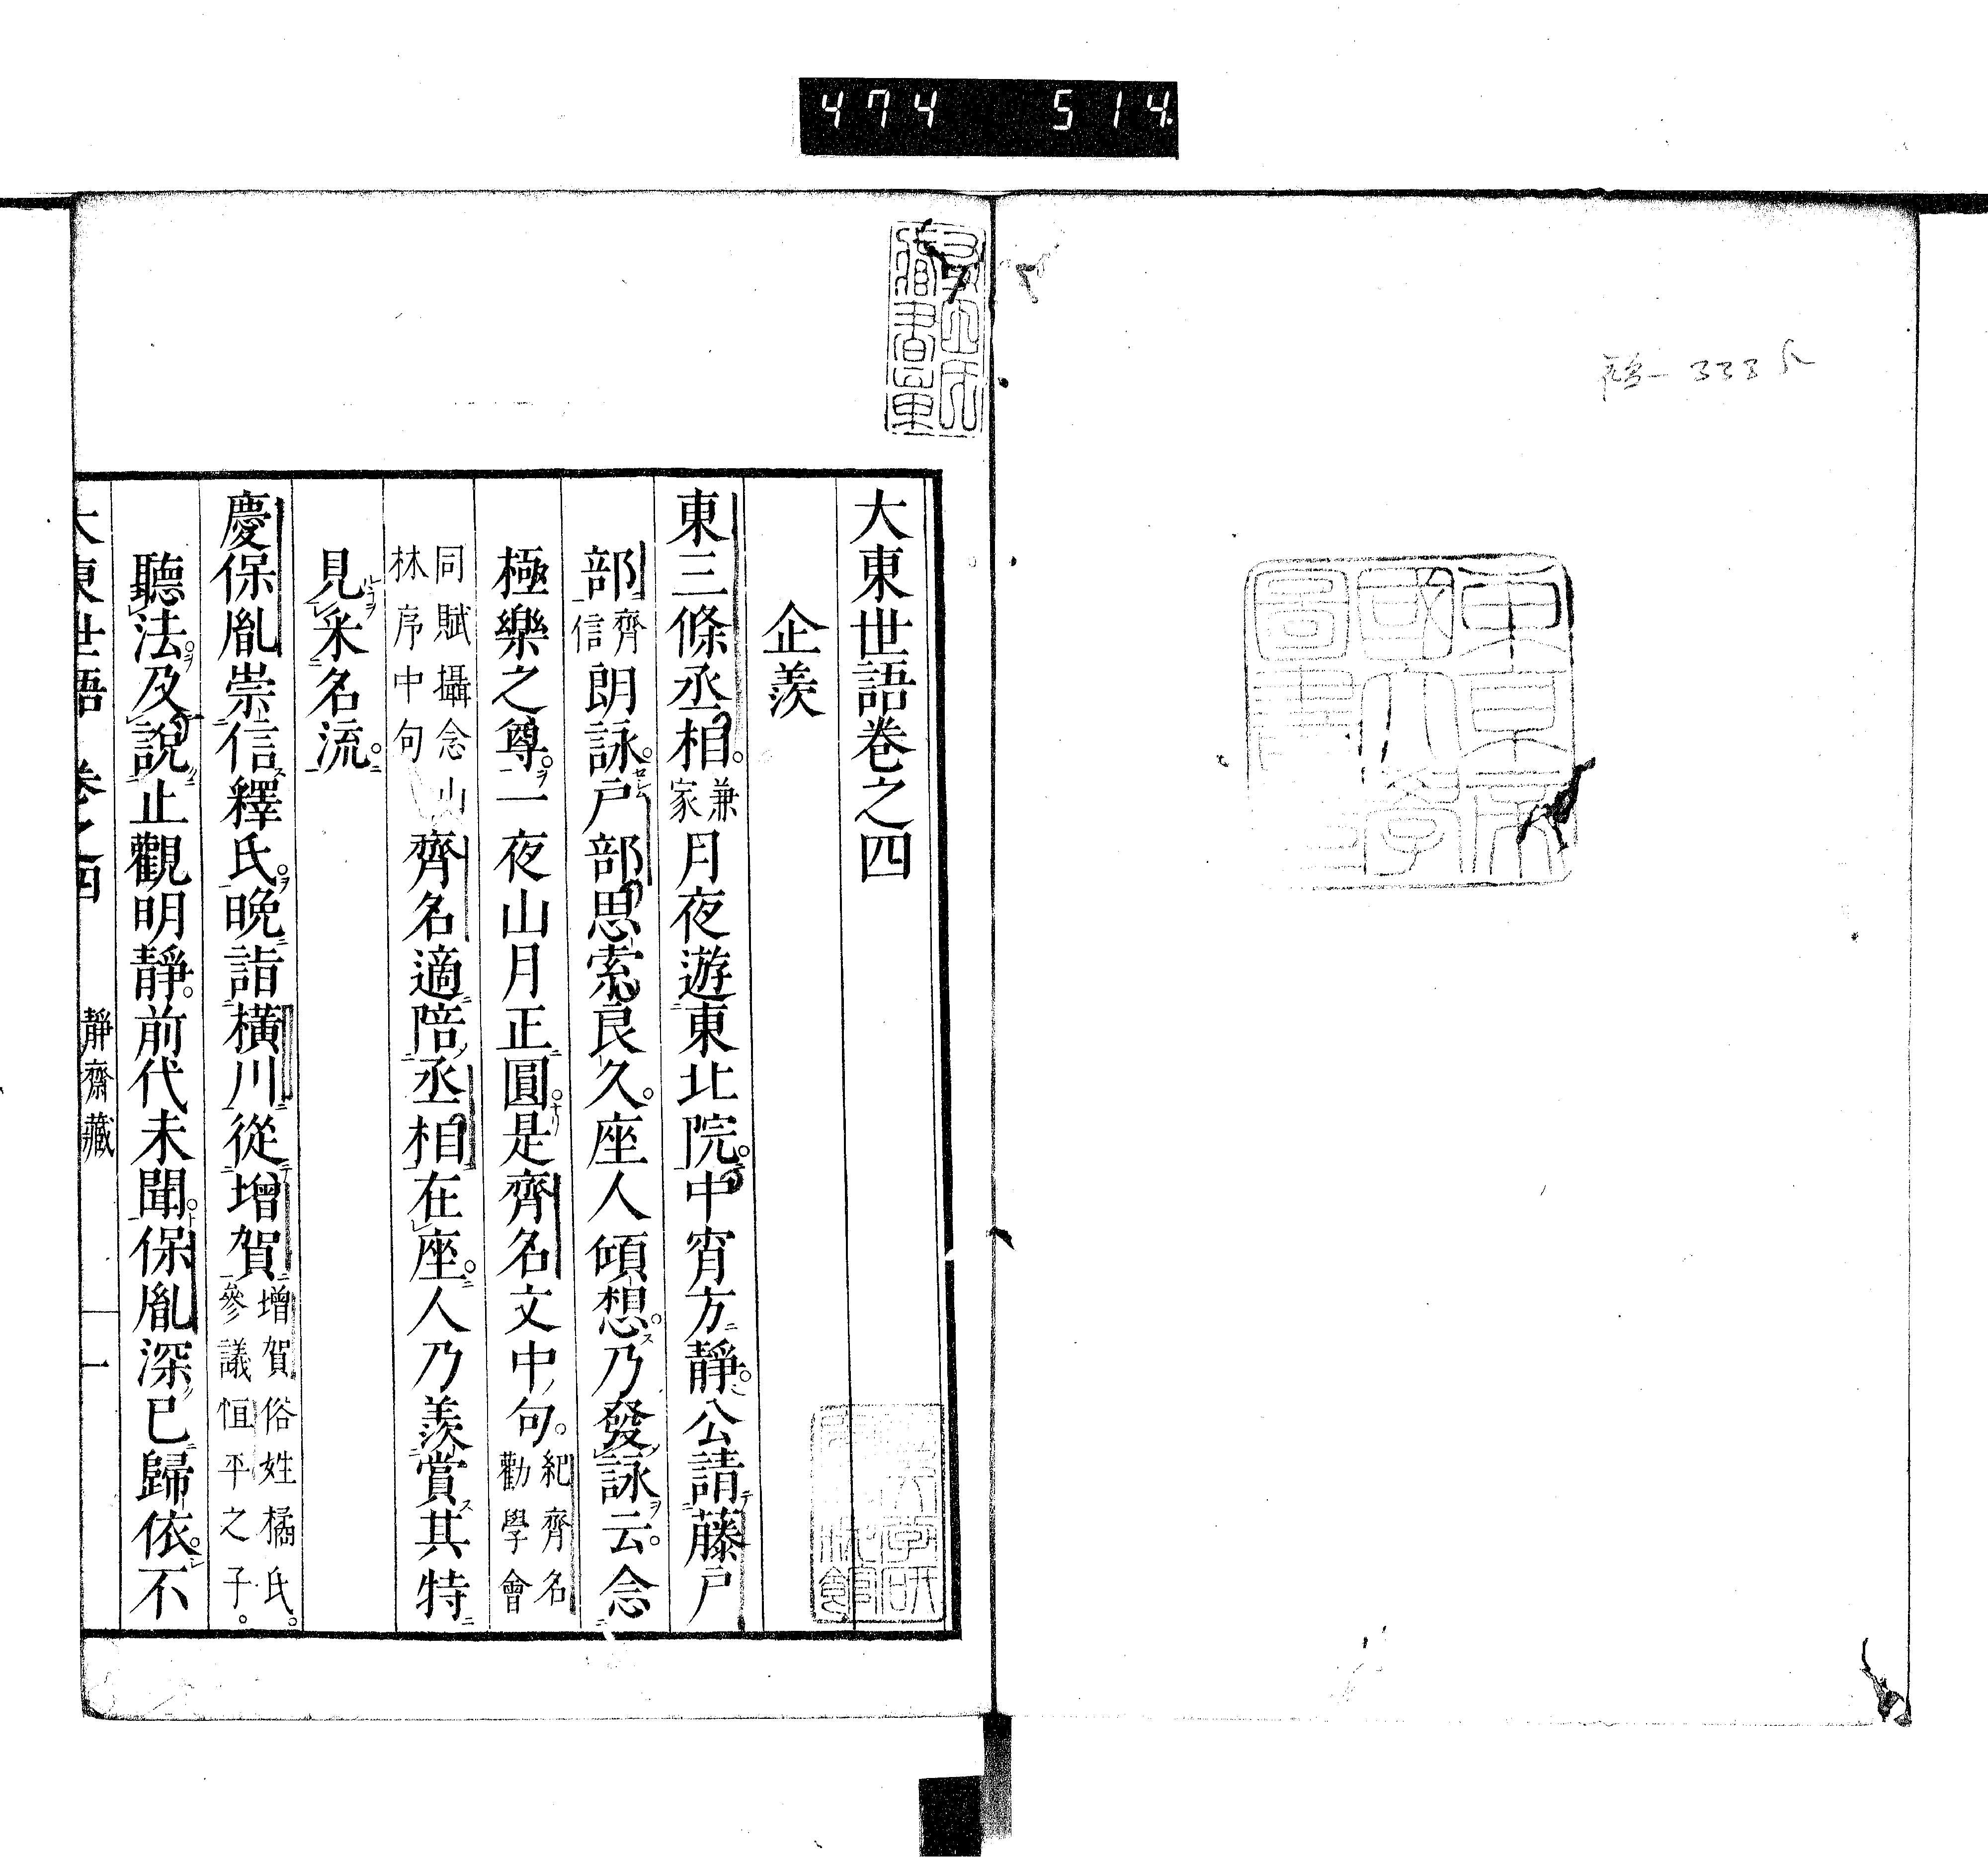 474 514.
大東世語卷之四
企羨
東三條丞相。兼家月夜遊東北院。中宵方靜。公請藤戶
部齊信朗詠。戶部思索良久。座人傾想。乃發詠云。念
極樂之尊。一夜山月正圓。是齊名文中句。紀齊名勸學會
同賦攝念山林序中句齊名適陪丞相在座。人乃羨賞其特
見采名流。
慶保胤崇信釋氏。晚詣橫川從增賀增賀俗姓橘氏。參議恒平之子。
聽法。及說止觀明靜。前代未聞。保胤深已歸依。不
大東世語 卷之四 一 靜齋藏